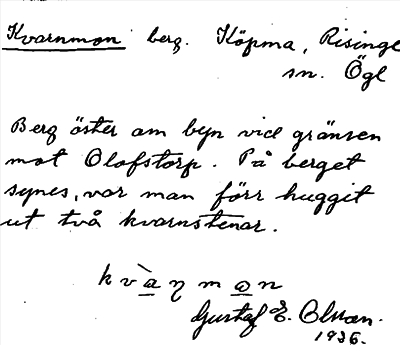 Kvarnmon berg. Köpma, Risinge
sn. Ögl
Berg öster om byn vid gränsen
mot Olofstorp. På berget
synes, var man förr huggit
ut två kvarnstenar.
kvàn̡mon
Gustaf E. Olsson.
1936.